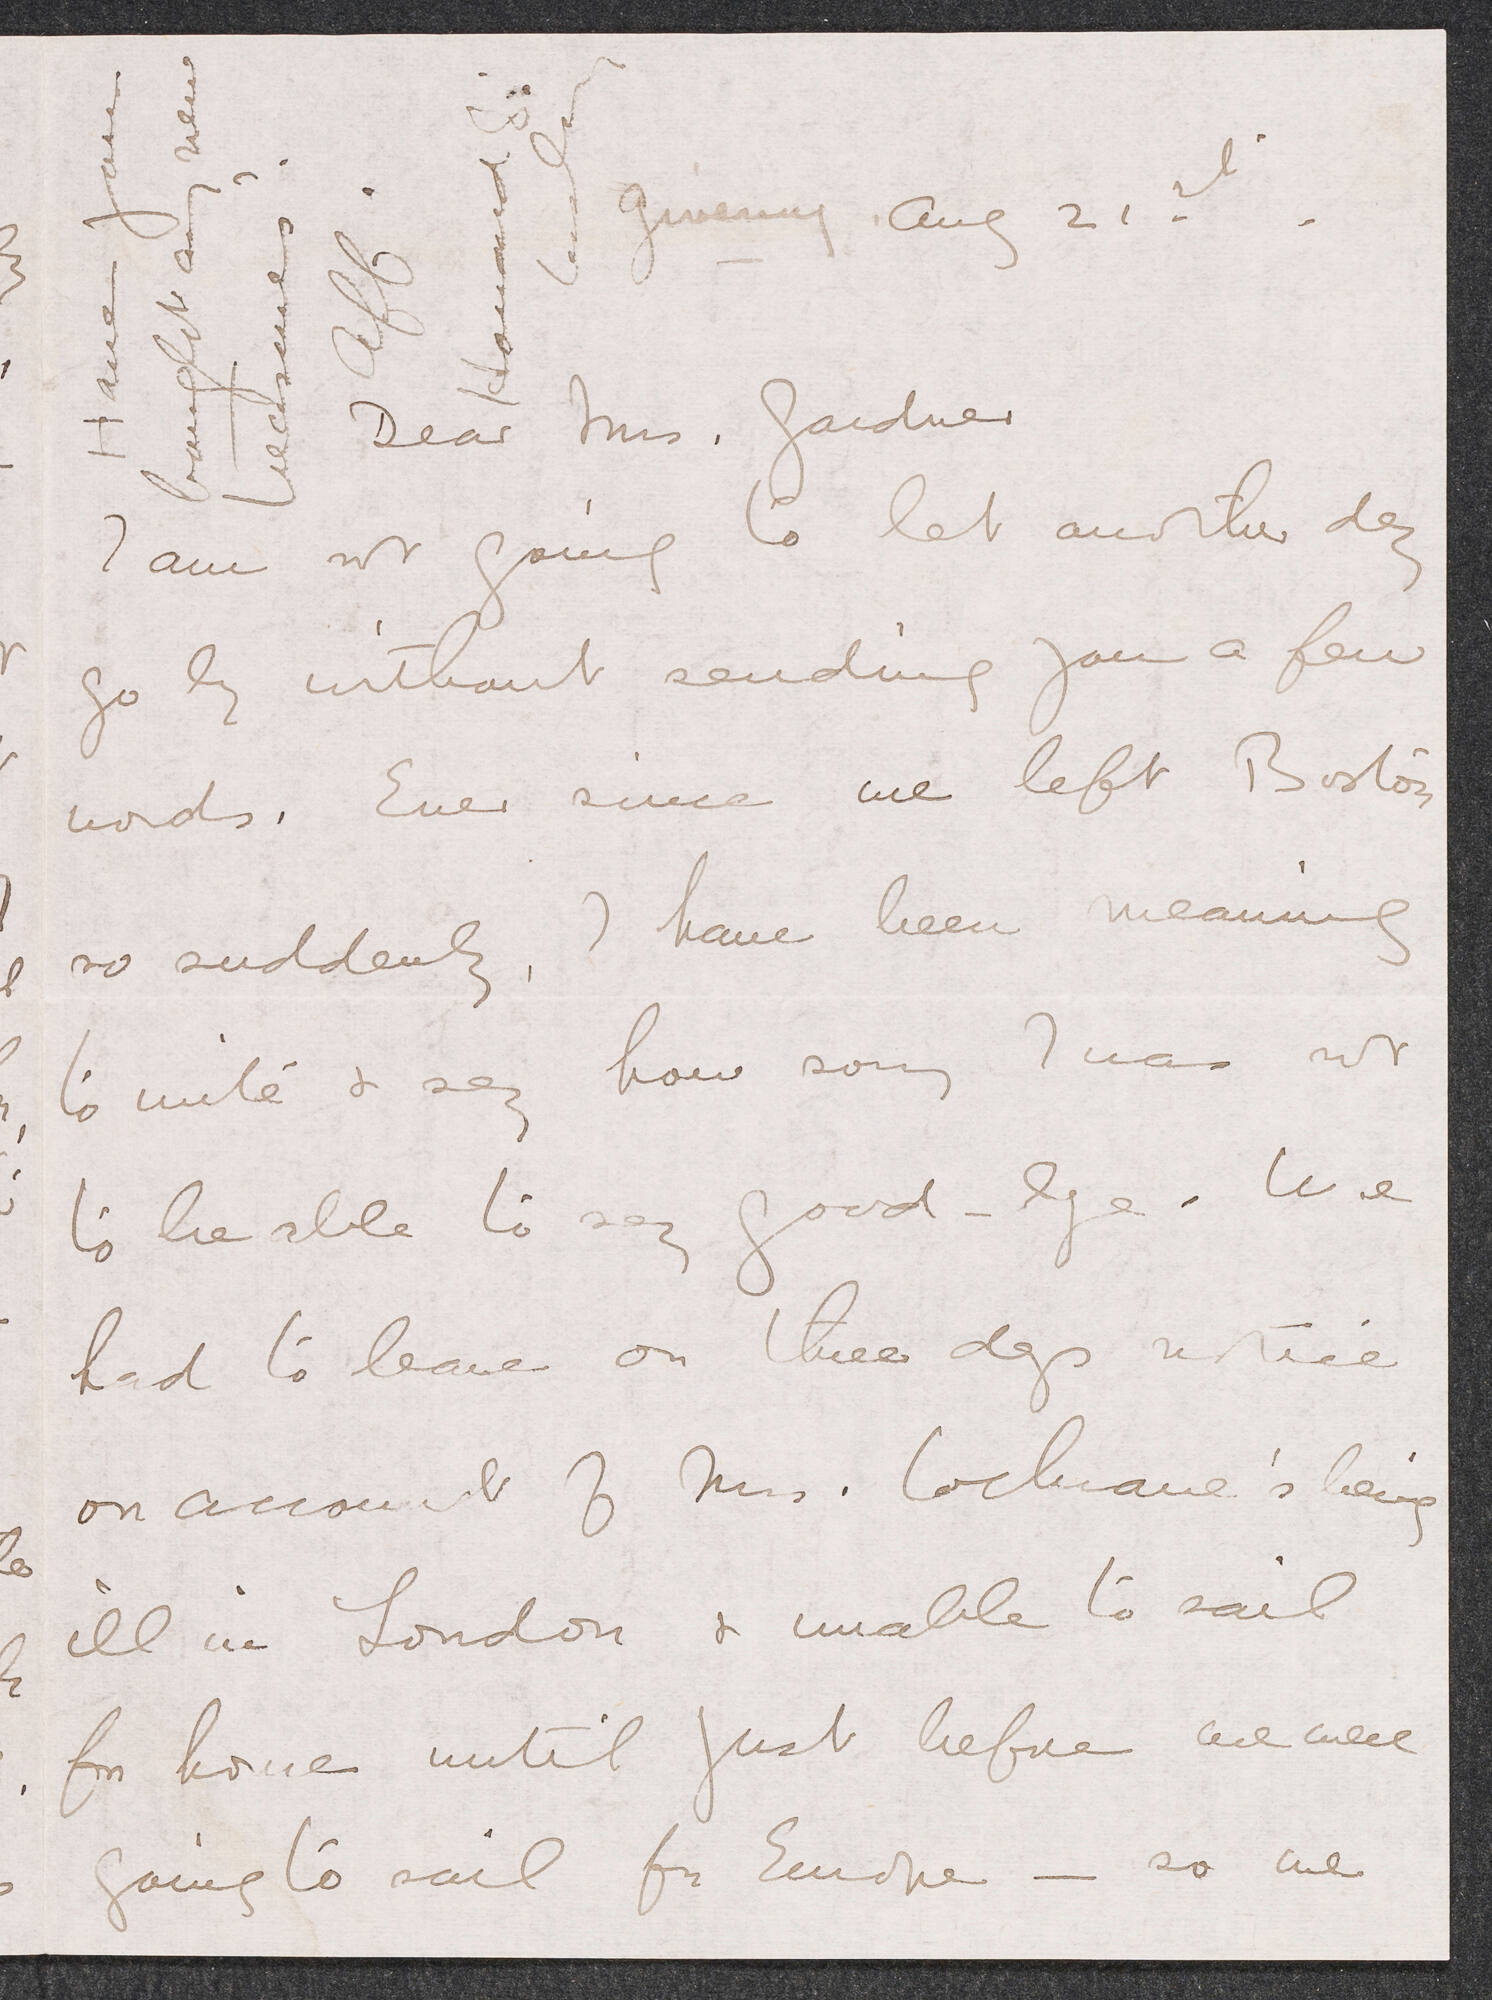 Giverny. Aug 21st.
Dear Mrs. Gardner
I am not going to let another day
go by without sending you a few
words. Ever since we left Boston
so suddenly, I have been meaning
to write & say how sorry I was not
to be able to say good-bye. We
had to leave on three days notice
on account of Mrs. Cochrane's being
ill in London & unable to sail
for home until just before we were
going to sail for Europe — so we
Have you
bought any new
treasures?
Aff.
Howard G.
Cushing